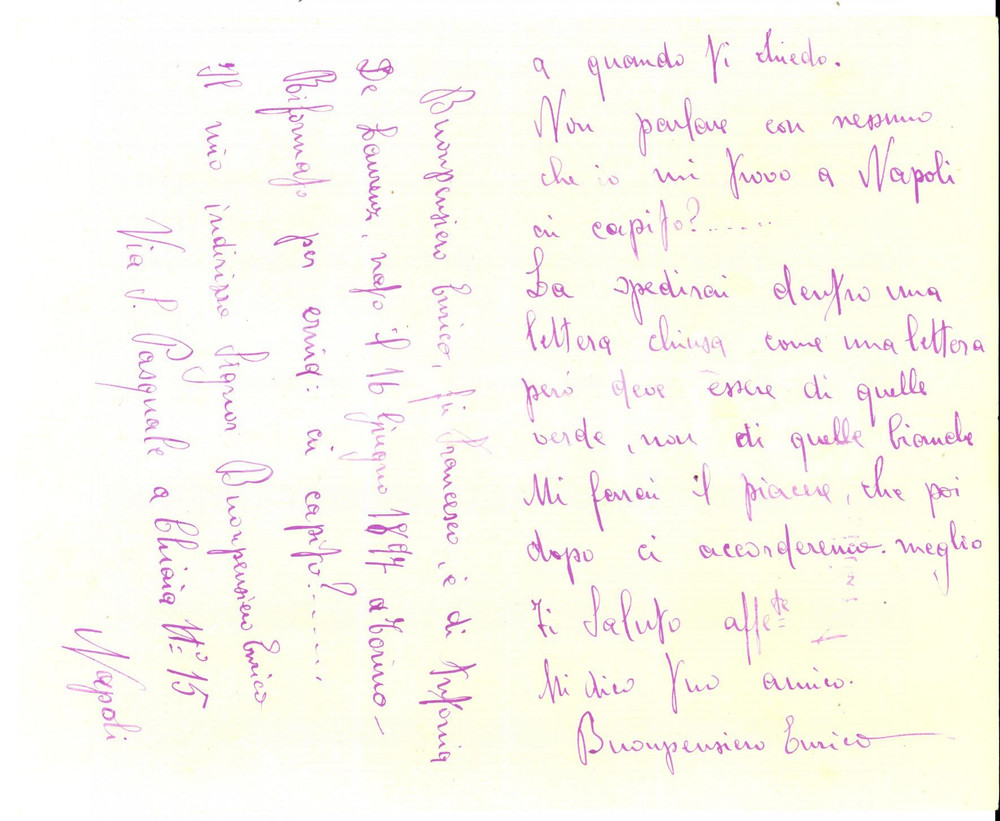 a quando ti chiedo.
Non parlare con nessuno
che io mi trovo a Napoli
ci capito?......
La spedirai dentro una
lettera chiusa come una lettera
però deve essere di quelle
verde, non di quelle bianche
Mi farai il piacere, che poi
dopo ci accorderemo meglio
Ti Saluto affte
Mi dico tuo amico.
Buonpensiero Enrico
Buonpensiero Enrico, fù Francesco, e di Antonia
De Laurenz, nato il 16 Giugno 1897 a Torino-
Riformato per ernia: ci capito?......
Il mio indirizzo Signor Buonpensiero Enrico
Via S. Pasquale a Chiaia N.º 15
Napoli